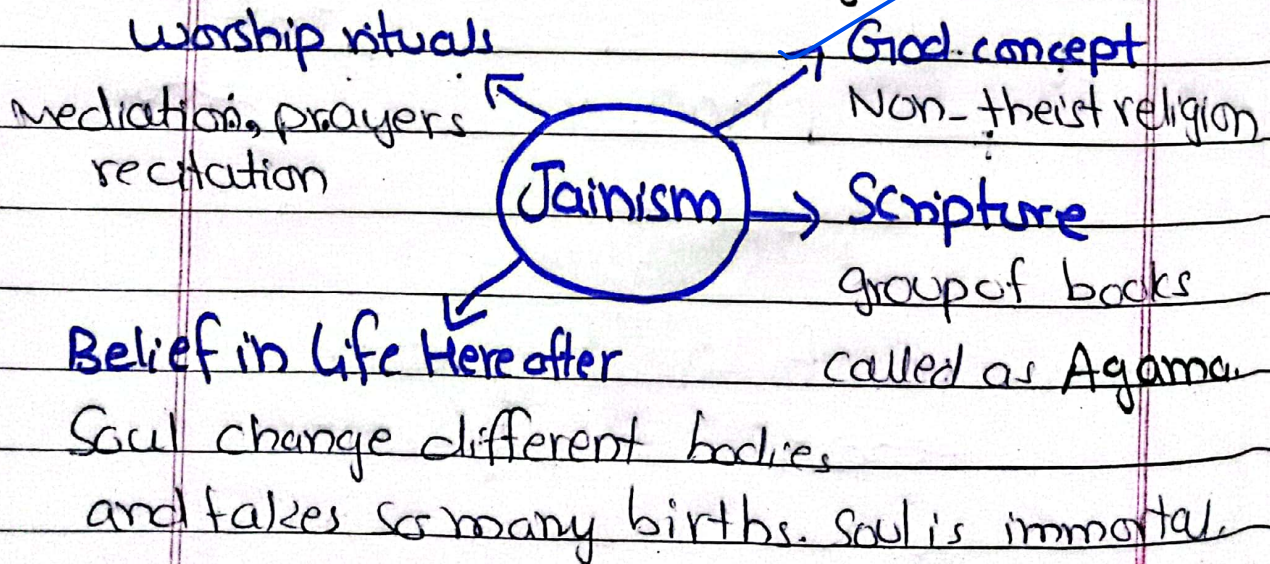 Worship rituals
mediation, prayers
recitation
God concept
Non-theist religion
Jainism
Scripture
group of books
called as Agama.
Belief in life Here after
Soul change different bodies
and takes so many births. Soul is immortal.